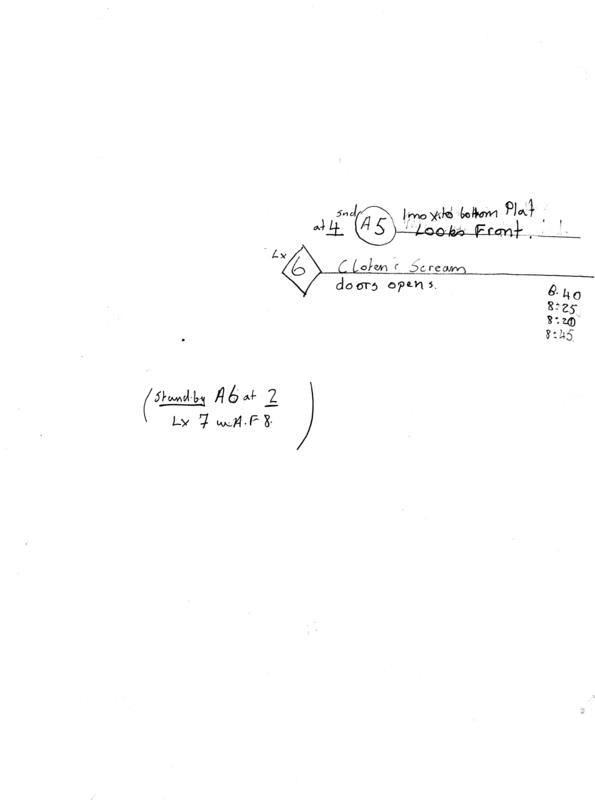 snd
at 4 A5 Imo x to bottom Plat.
Looks Front.
Lx 6 Cloten's Scream
doors opens.
8.40
8:25
8:20
8:45
(Stand.by A6 at 2
Lx 7 w A.F 8.)